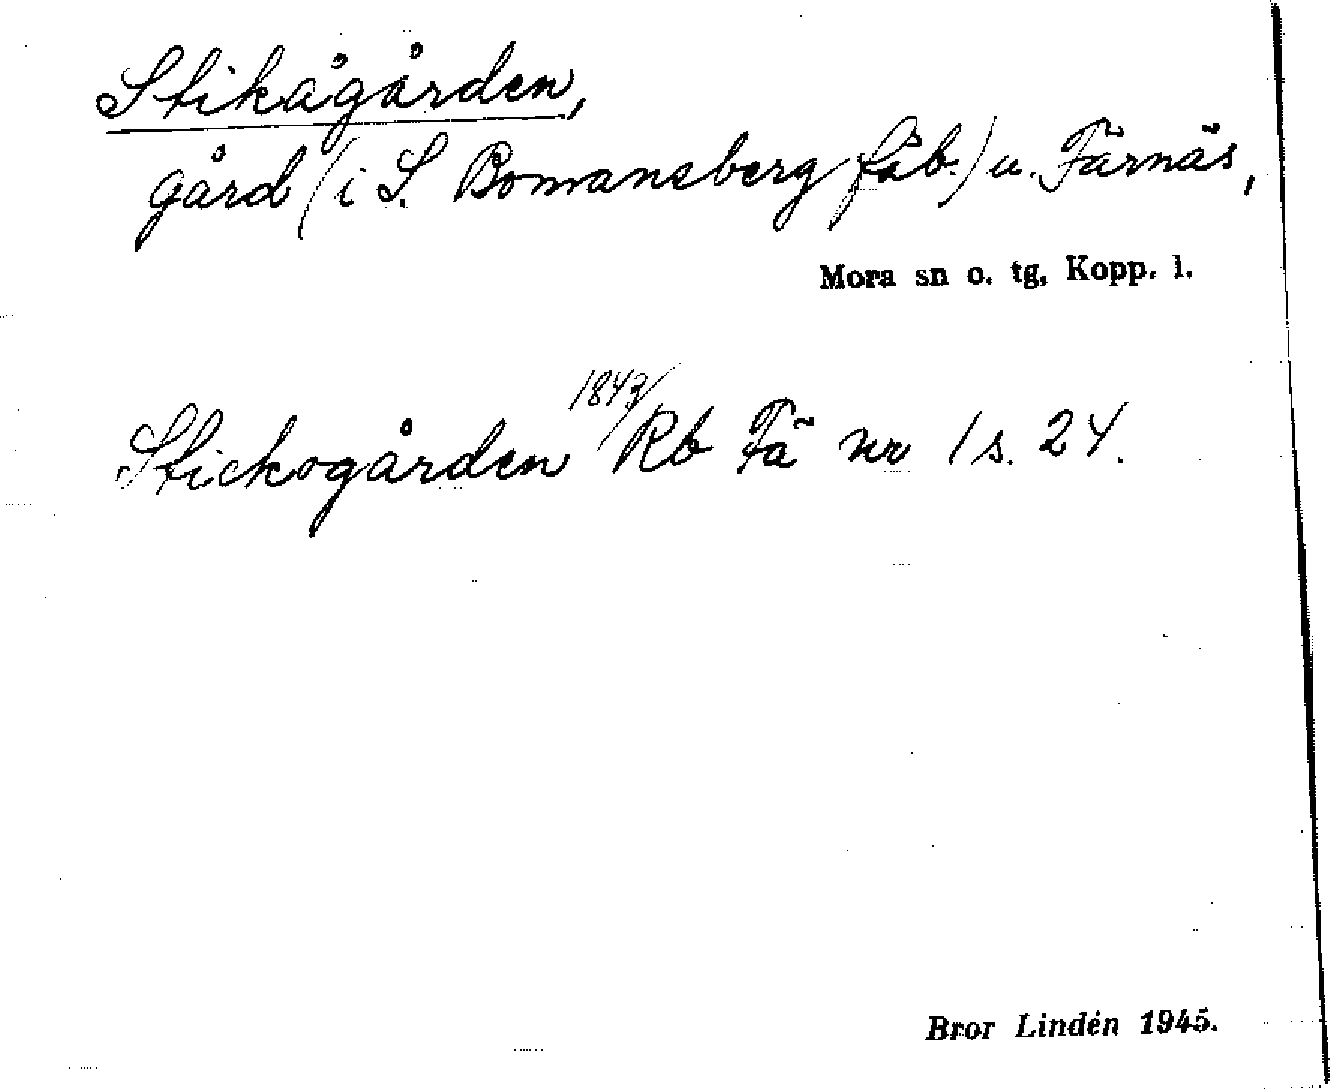 Stikågården,
gård (i S. Bomansberg fäb.) u. Färnäs,
Mora sn o. tg, Kopp. l.
Stickogården 1843/ Rb Fä nr 1 s. 24.
Bror Lindén 1945.